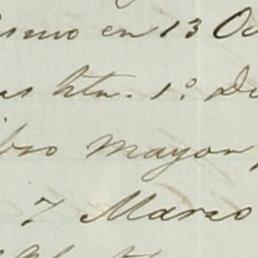 ismo en 13 Oc
as htn. 1º De
bro mayor
7 Marzo